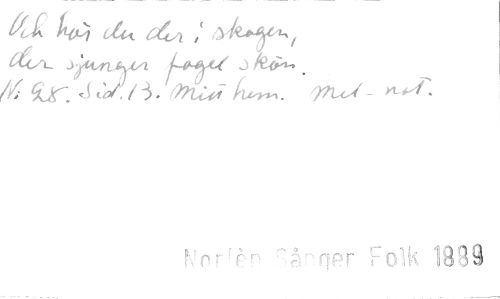 Och hör du der i skogen,
der sjunger fogel skön.
N: 98. Sid. 13. Mitt hem. Mel-not.
Norlèn Sånger Folk 1889